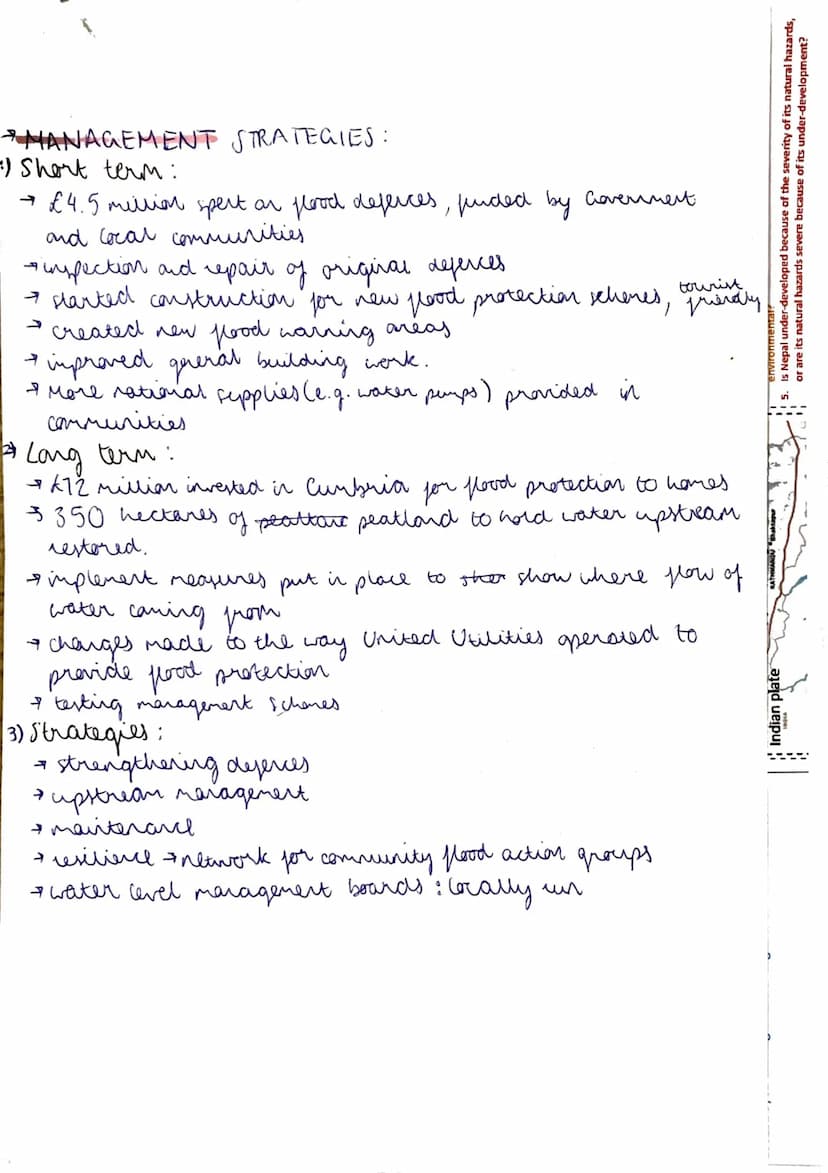 → MANAGEMENT STRATEGIES:
1) Short term:
→ £4.5 million spent on flood defences, funded by Government
and local communities
→ inspection and repair of original defences
→ started construction for new flood protection schemes, tourist friendly
→ created new flood warning areas
→ improved general building work.
→ More national supplies (e.g. water pumps) provided in
communities
2) Long term:
→ £72 million invested in Cumbria for flood protection to homes
→ 350 hectares of peatland to hold water upstream
restored.
→ implement measures put in place to show where flow of
water coming from
→ changes made to the way United Utilities operated to
provide flood protection
→ testing management schemes
3) Strategies:
→ strengthening defences
→ upstream management
→ maintenance
→ resilience → network for community flood action groups
→ water level management boards: locally run
environmental?
5. Is Nepal under-developed because of the severity of its natural hazards,
or are its natural hazards severe because of its under-development?
KATHMANDU
Indian plate
INDIA